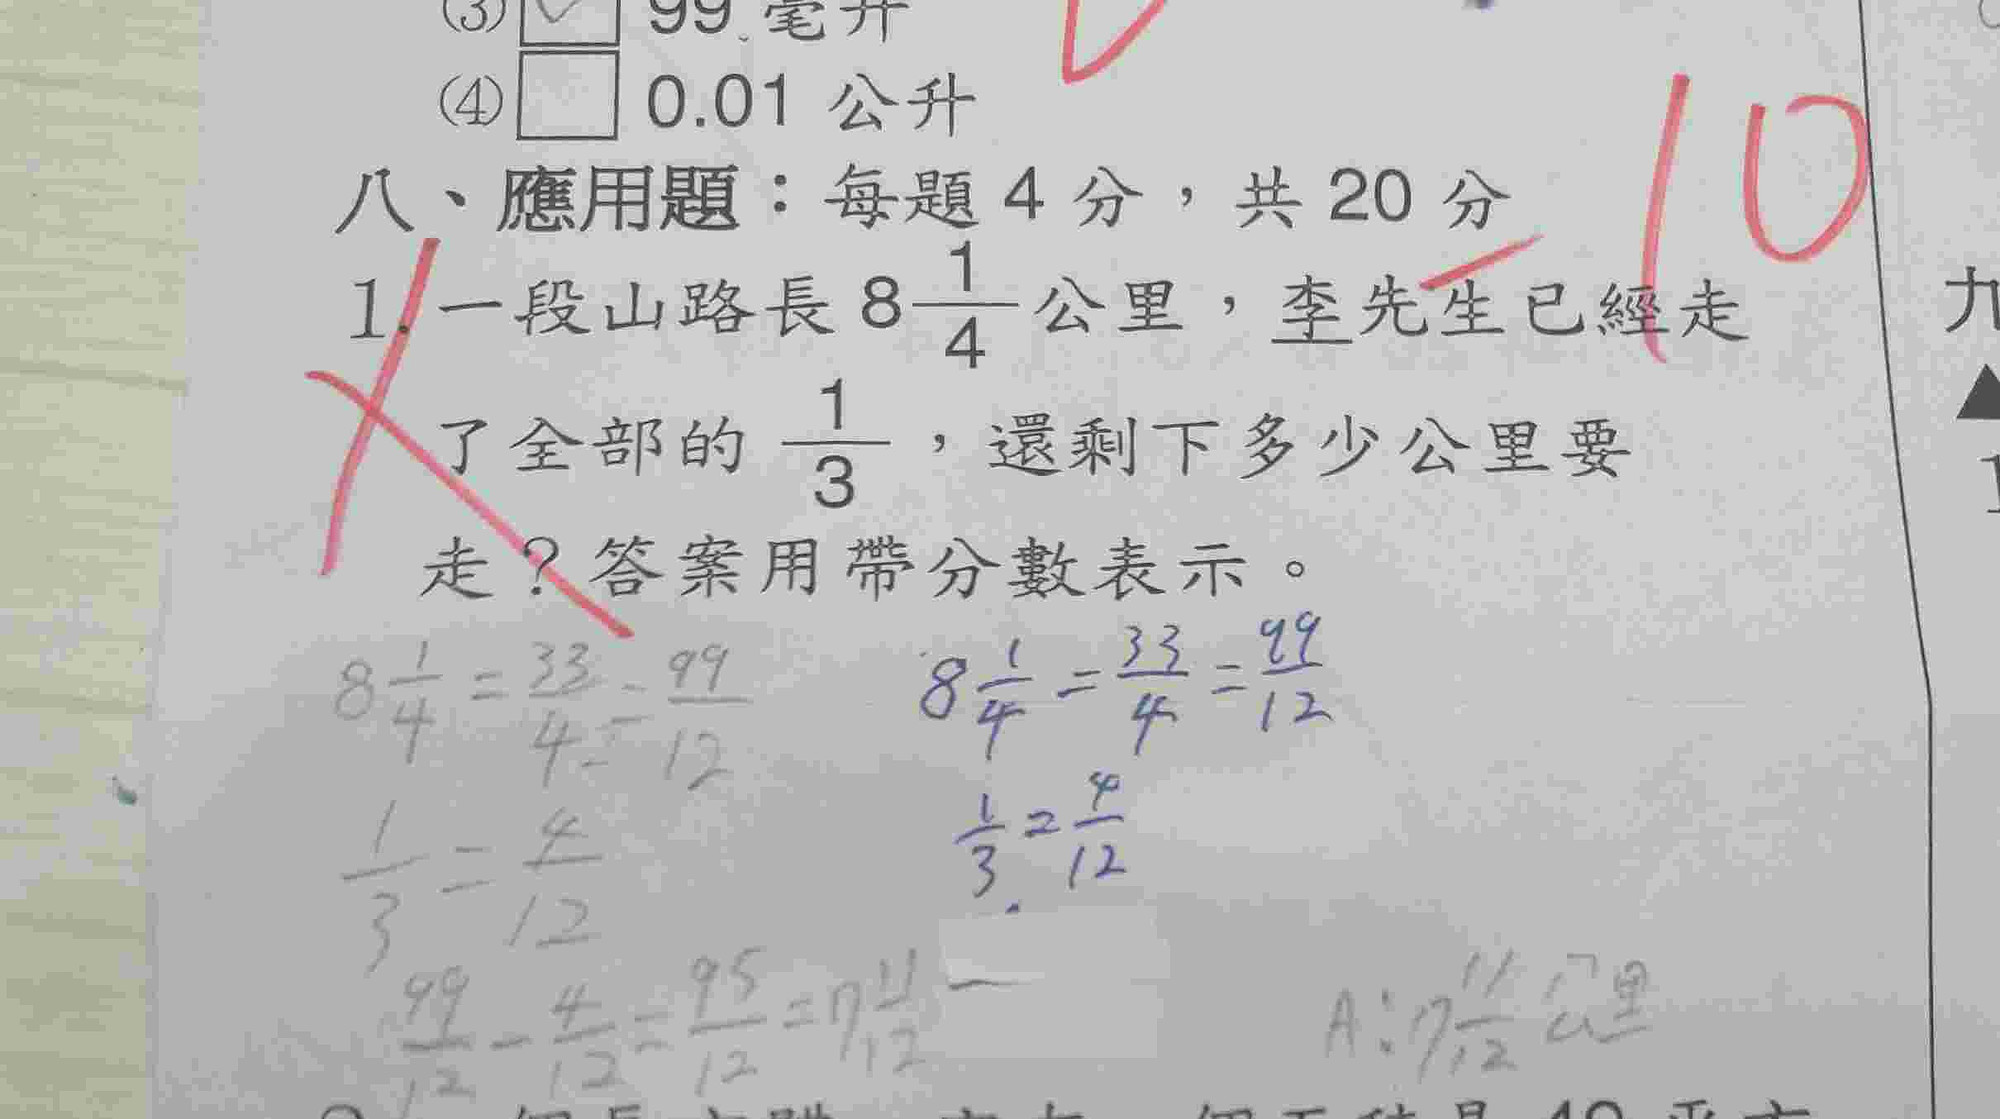 (3) ☑ 99 毫升
(4) □ 0.01 公升
八、應用題：每題 4 分，共 20 分
-10
1. 一段山路長 8 1/4 公里，李先生已經走
了全部的 1/3，還剩下多少公里要
走？答案用帶分數表示。
8 1/4 = 33/4 = 99/12
8 1/4 = 33/4 = 99/12
1/3 = 4/12
1/3 = 4/12
99/12 - 4/12 = 95/12 = 7 11/12
A：7 11/12 公里
九
1